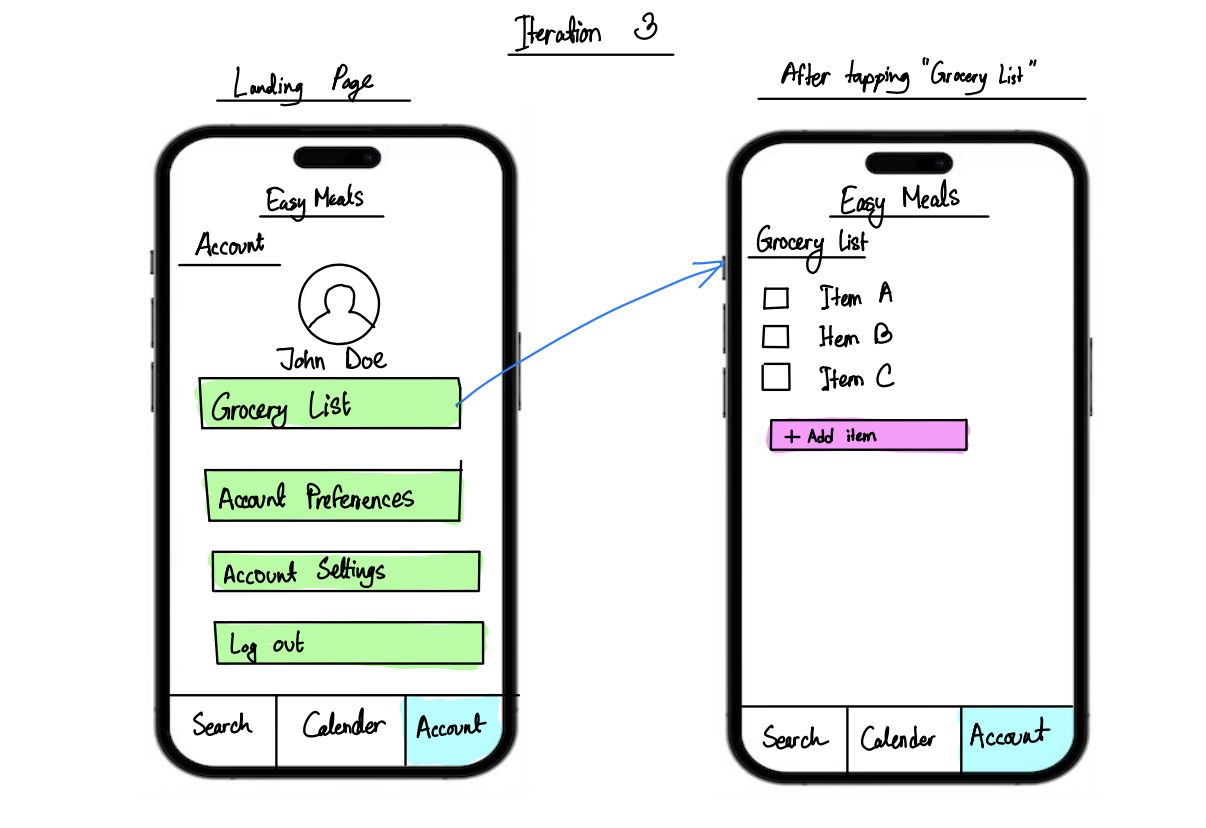 Iteration 3
Landing Page
Easy Meals
Account
John Doe
Grocery List
Account Preferences
Account Settings
Log out
Search Calender Account
After tapping "Grocery List"
Easy Meals
Grocery List
Item A
Item B
Item C
+ Add item
Search Calender Account